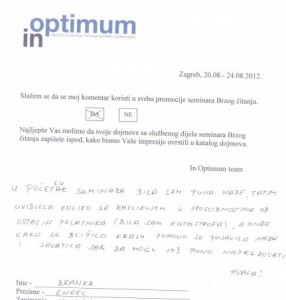 optimum
in
Zagreb, 20.08.- 24.08.2012.
Slažem se da se moj komentar koristi u svrhu promocije seminara Brzog čitanja.
DA NE
Najljepše Vas molimo da svoje dojmove sa službenog dijela seminara Brzog
čitanja zapišete ispod, kako bismo Vaše impresije uvrstili u katalog dojmova.
In Optimum team
U POČETKU SEMINARA BILA SAM PUNA NADE, ZATIM
UVIDJELA KOLIKO SE RAZLIKUJEM U SPOSOBNOSTIMA OD
OSTALIH POLAZNIKA (BILA SAM KATASTROFA), A ONDA
KAKO SE BLIŽILO KRAJU PONOVO SE POJAVILA NADA
I SHVATILA SAM DA MOGU JOŠ PUNO NAPREDOVATI
HVALA!
Ime - BRANKA
Prezime - ENGEL